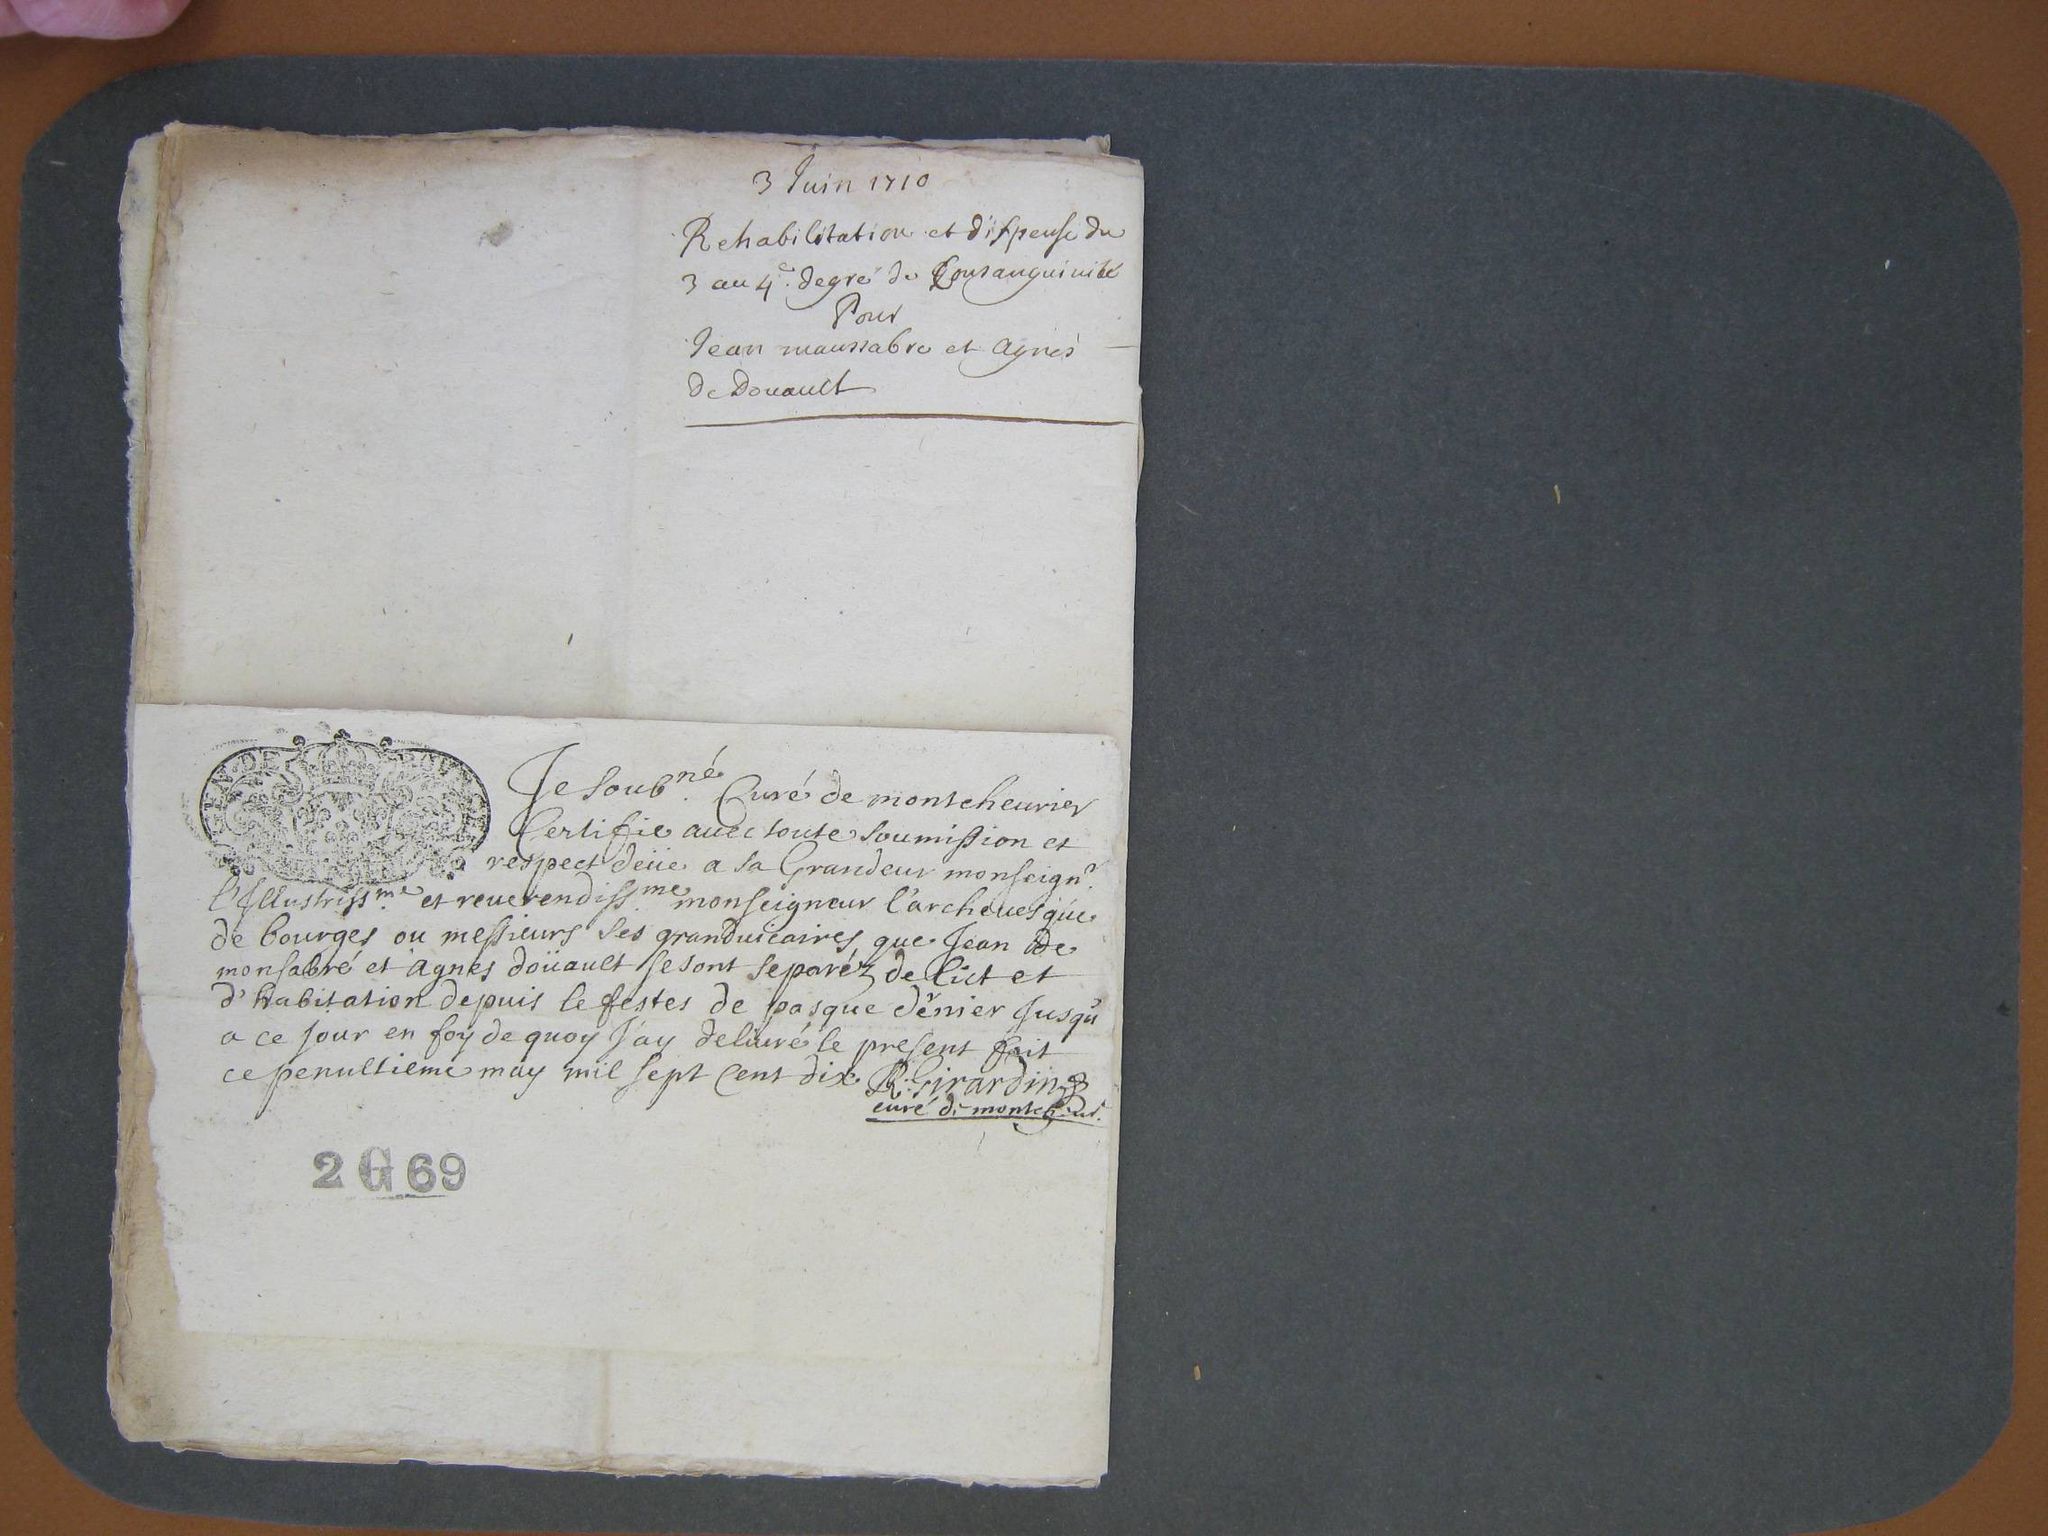 3 Juin 1710
Rehabilitation et dispense du
3 au 4e. degré de Consanguinité
Pour
Jean maussabre et Agnés
de Douault
GEN. DE BOURGES
Je soubné. Curé de montcheurier
Certifie auec toute soumission et
respect deüe a sa Grandeur monseignr.
l'Illustrissme. et reuerendissme. monseigneur l'archeuesque
de bourges ou messieurs ses granduicaires que Jean de
monsabré et Agnes doüault se sont separéz de lict et
d'habitation depuis le festes de pasque dernier Jusqu'
a ce jour en foy de quoy J'ay deliuré le present fait
ce penultieme may mil sept Cent dix R. Girardin
curé de montcheur.
2 G 69